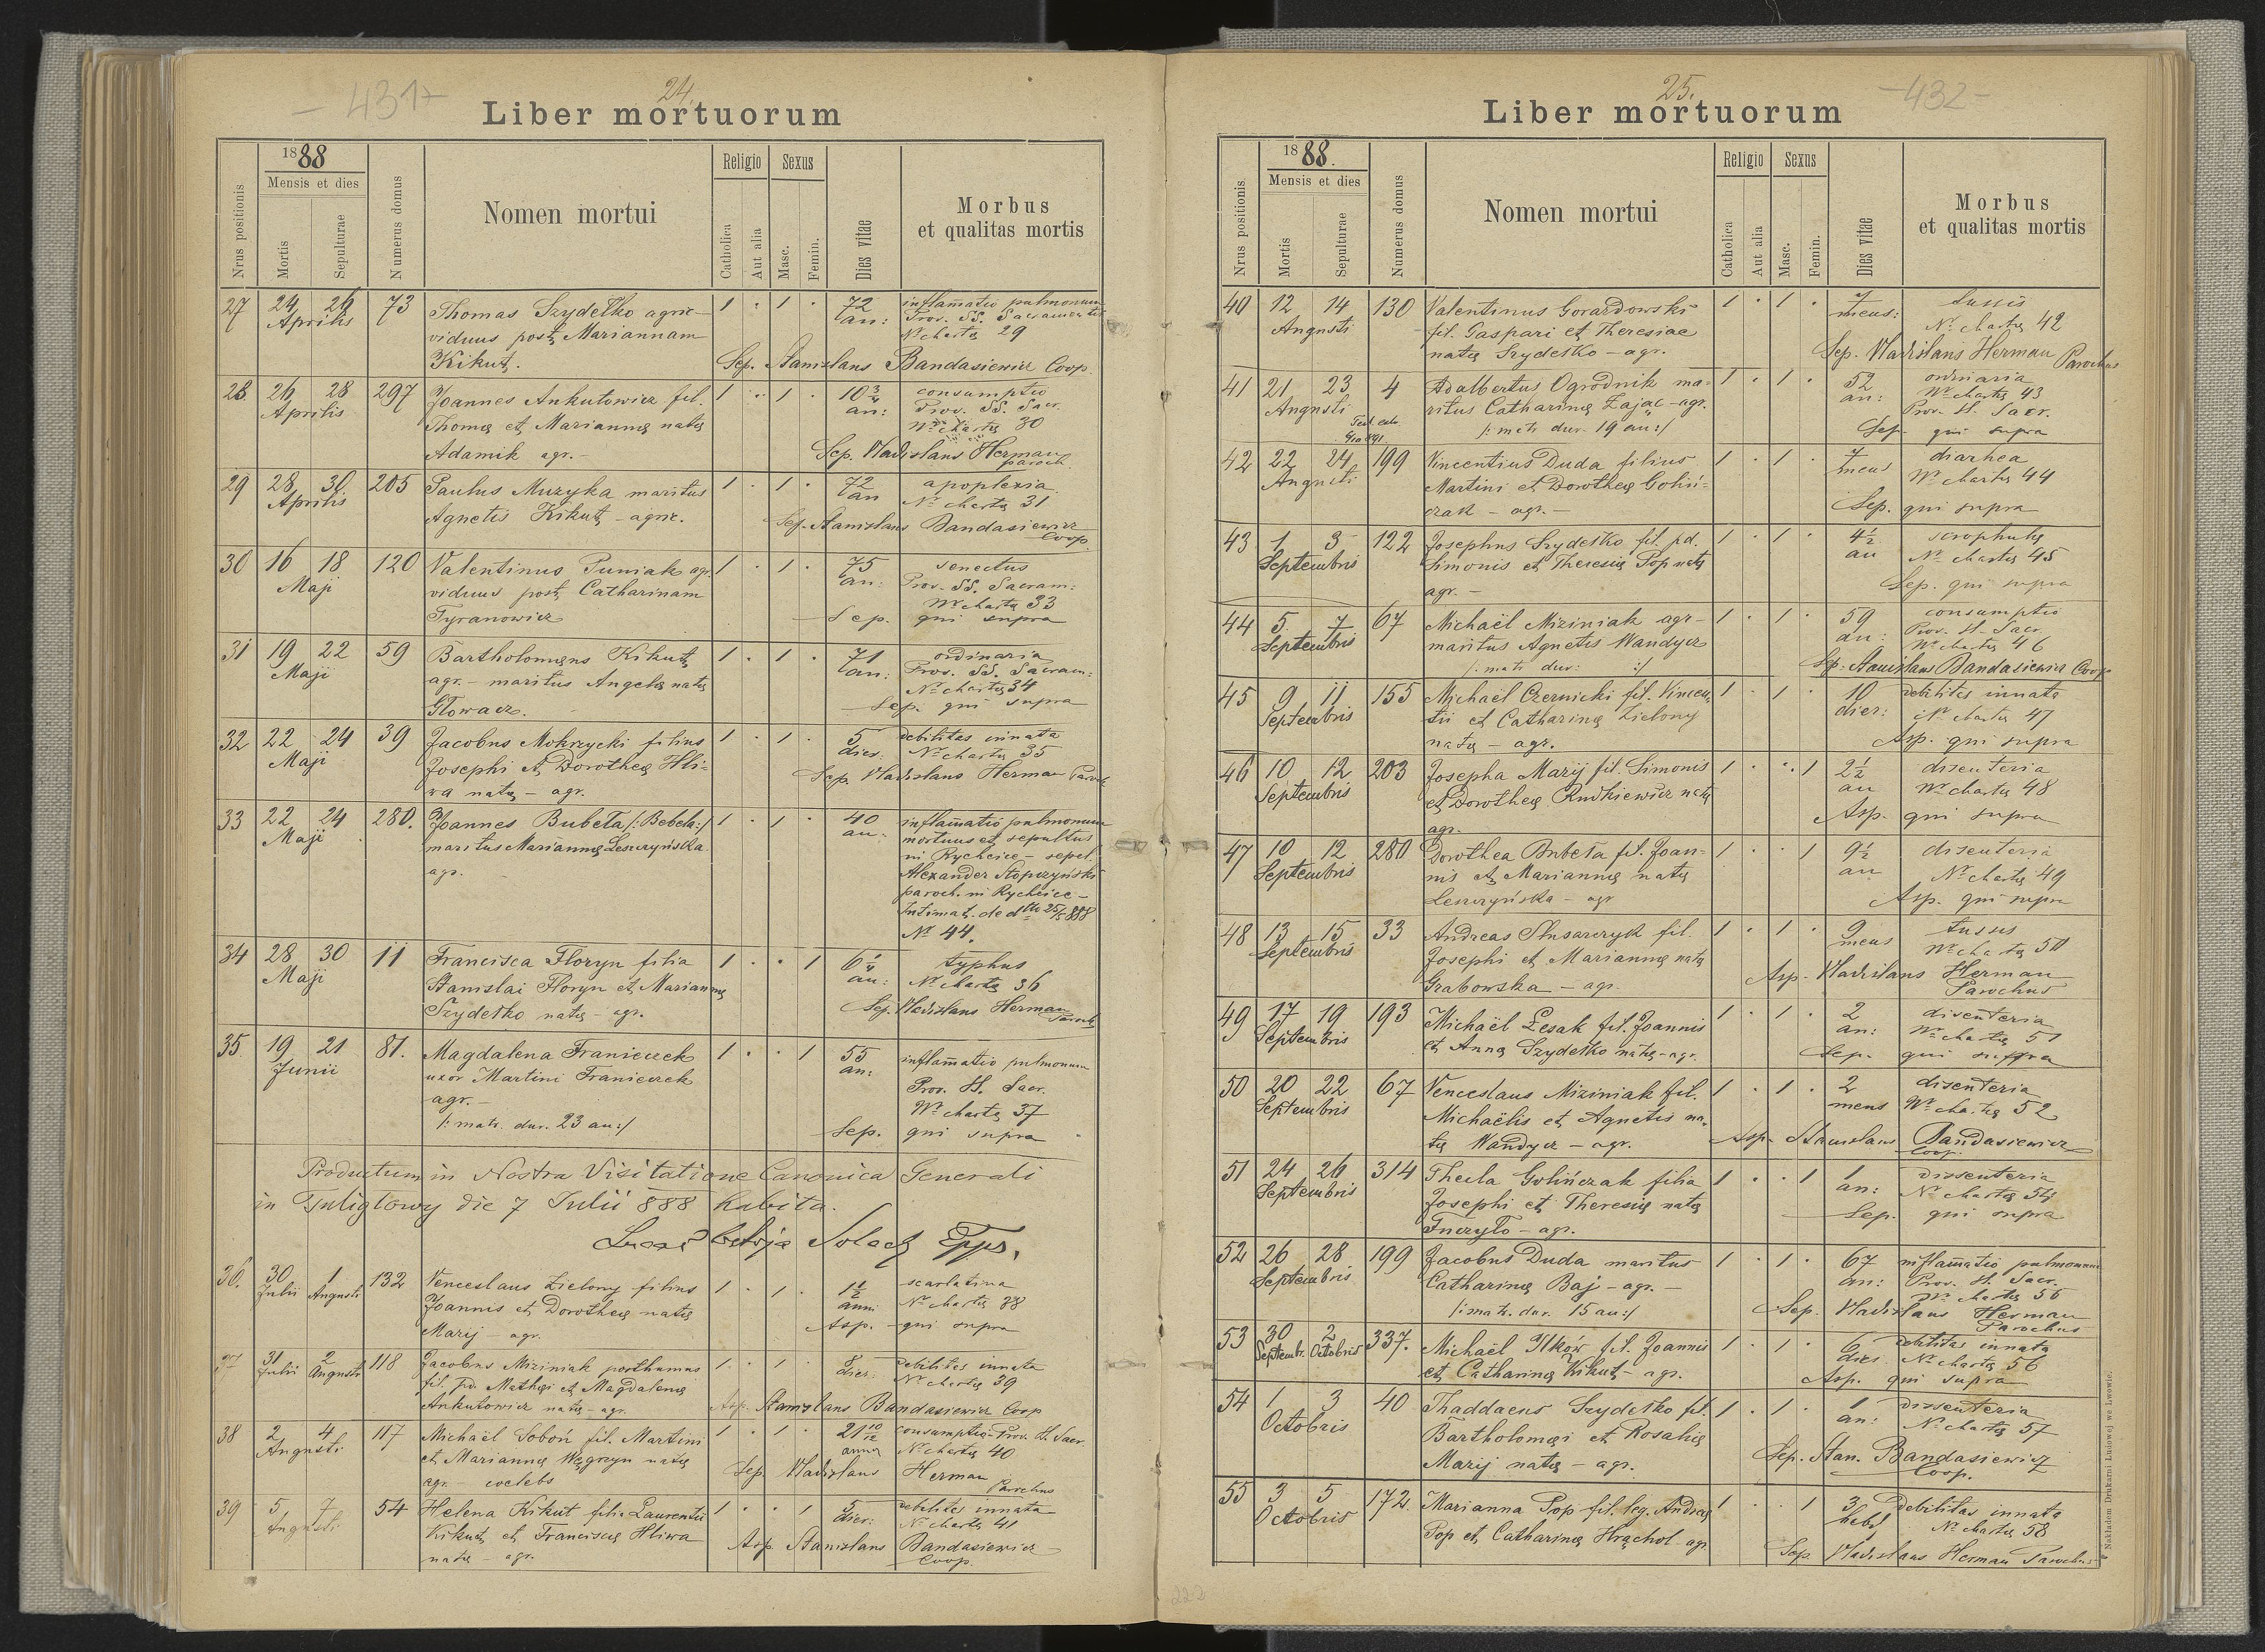 - 431 -
24.
Liber mortuorum
Nrus positionis
1888
Mensis et dies
Mortis
Sepulturae
Numerus domus
Nomen mortui
Religio
Catholica
Aut alia
Sexus
Masc.
Femin.
Dies vitae
Morbus
et qualitas mortis
27 24 26 73 Thomas Szydełko agric- 1 · 1 · 72 inflam̄atio pulmonum
Aprilis viduus post Mariannam an: Prov. SS. Sacramentis
Nr chartę 29
Kikut. Sep. Stanislaus Bandasiewicz Coop.
28 26 28 297 Joannes Ankutowicz fil. 1 · 1 · 10 3/4 consumptio
Aprilis Thomę et Mariannę natę an: Prov. SS. Sacr.
Nr chartę 30
Adamik agr.- Sep. Wladislaus Herman
paroch.
29 28 30 205 Paulus Muzyka maritus 1 · 1 · 72 apoplexia
Aprilis Agnetis Kikut - agric. an Nr chartę 31
Sep. Stanislaus Bandasiewicz
Coop.
30 16 18 120 Valentinus Puniak agr. 1 · 1 · 75 senectus
Maji viduus post Catharinam an: Prov. SS. Sacram:
Nr chartę 33
Tyranowicz Sep. qui supra
31 19 22 59 Bartholomęus Kikut 1 · 1 · 71 ordinaria
Maji agr. - maritus Angelę natę an: Prov. SS. Sacram:
Nr chartę 34
Głowacz. Sep. qui supra
32 22 24 39 Jacobus Mokrzycki filius 1 · 1 · 5 debilitas innata
Maji Josephi et Dorotheę Hli- dier. Nr chartę 35
wa natę - agr. Sep. Wladislaus Herman Paroch
33 22 24 280. Joannes Bubeta /:Bebela:/ 1 · 1 · 40 inflam̄atio pulmonum
Maji maritus Mariannę Leszczyńska an: mortuus et sepultus
agr. in Rychcice - sepel.
Alexander Stopczyński
paroch. in Rychcice -
Intimat. de dtto 25/5 888
Nr 44.
34 28 30 11 Francisca Floryn filia 1 · · 1 6 1/4 typhus
Maji Stanislai Floryn et Mariannę an: Nr chartę 36
Szydełko natę - agr. Sep. Wladislaus Herman
Paroch
35 19 21 81. Magdalena Franiczek 1 · · 1 55 inflam̄atio pulmonum
Junii uxor Martini Franiczek an: Prov. St. Sacr.
agr.- Nr chartę 37
/: matr. dur. 23 an:/ Sep. qui supra
Productum in Nostra Visitatione Canonica Generali
in Tuligłowy die 7 Julii 888 habita.
Solecki Epps.
36. 30 1 132 Venceslaus Zielony filius 1 · 1 · 1 1/2 scarlatina
Julii Augusti Joannis et Dorotheę natę anni Nr chartę 38
Marij - agr. Asp. - qui supra
37 31 2 118 Jacobus Miziniak posthumus 1 · 1 · 8 debilitas innata
Julii Augusti fil. pd. Mathęi et Magdalenę dier. Nr chartę 39
Ankutowicz natę - agr. Asp. Stanislaus Bandasiewicz Coop
38 2 4 117 Michaël Soboń fil. Martini 1 · 1 · 21 10/12 consumptio - Prov. St. Sacr.
Augusti et Mariannę Węgrzyn natę anno Nr chartę 40
agr. coelebs Sep. Wladislaus Herman
Parochus
39 5 7 54 Helena Kikut filia Laurentii 1 · · 1 5 debilitas innata
Augusti Kikut et Franciscę Hliwa dier: Nr chartę 41
natę - agr. Asp. Stanislaus Bandasiewicz
Coop.
- 432 -
25.
Liber mortuorum
Nrus positionis
1888.
Mensis et dies
Mortis
Sepulturae
Numerus domus
Nomen mortui
Religio
Catholica
Aut alia
Sexus
Masc.
Femin.
Dies vitae
Morbus
et qualitas mortis
40 12 14 130 Valentinus Gorardowski 1 · 1 · 7 tussis
Augusti fil. Gaspari et Theresiae mens: Nr chartę 42
natę Szydełko - agr. Sep. Wladislaus Herman Parochus
41 21 23 4 Adalbertus Ogrodnik ma- 1 · 1 · 52 ordinaria
Augusti ritus Catharinę Zając - agr. an: Nr chartę 43
/: matr dur. 19 an:/ Prov. St. Sacr.
Sep. qui supra
42 22 24 199 Vincentius Duda filius 1 · 1 · 7 diarhea
Augusti Martini et Dorotheę Goliń- mens Nr chartę 44
czak - agr. - Sep. qui supra
43 1 3 122 Josephus Szydełko fil. pd. 1 · 1 · 4 1/2 scrophulę
Septembris Simonis et Theresię Pop natę an Nr chartę 45
agr. - Sep. qui supra
44 5 7 67 Michaël Miziniak agr- 1 · 1 · 59 consumptio
Septembris maritus Agnetis Wandycz an: Prov. St. Sacr.
/: matr dur: :/ Nr chartę 46
Sep. Stanislaus Bandasiewicz Coop
45 9 11 155 Michaël Czernicki fil. Vincen- 1 · 1 · 10 debilitas innata
Septembris tii et Catharinę Zielony dier: Nr chartę 47
natę - agr. Asp. qui supra
46 10 12 203 Josepha Marij fil. Simonis 1 · · 1 2 1/2 disenteria
Septembris et Dorotheę Rudkiewicz natę an Nr chartę 48
agr. Asp. qui supra
47 10 12 280 Dorothea Bubeta fil. Joan- 1 · · 1 9 1/2 disenteria
Septembris nis et Mariannę natę an Nr chartę 49
Leszczyńska - agr Asp. qui supra
48 13 15 33 Andreas Slusarczyk fil. 1 · 1 · 9 tussis
Septembris Josephi et Mariannę natę mens Nr chartę 50
Grabowska - agr. Asp. Wladislaus Herman
Parochus
49 17 19 193 Michaël Lesak fil. Joannis 1 · 1 · 2 disenteria
Septembris et Annę Szydełko natę - agr. an: Nr chartę 51
Sep. qui supra
50 20 22 67 Venceslaus Miziniak fil. 1 · 1 · 2 disenteria
Septembris Michaëlis et Agnetis na- mens Nr chartę 52
tę Wandycz - agr. Asp. Stanislaus Bandasiewicz
Coop.
51 24 26 314 Thecla Golińczak filia 1 · · 1 1 dissenteria
Septembris Josephi et Theresię natę an: Nr chartę 54
Tuczyło - agr. Sep. qui supra
52 26 28 199 Jacobus Duda maritus 1 · 1 · 67 inflam̄atio pulmonum
Septembris Catharinę Baj - agr. - an: Prov. St. Sacr.
/: matr. dur. 15 an:/ Nr chartę 55
Sep. Wladislaus Herman
Parochus
53 30 2 337. Michaël Ilków fil. Joannis 1 · 1 · 6 debilitas innata
Septembr. Octobris et Catharinę Kikut - agr. dies Nr chartę 56
Asp. qui supra
54 1 3 40 Thaddaeus Szydełko fil. 1 · 1 · 1 dissenteria
Octobris Bartholomęi et Rosalię an: Nr chartę 57
Marij natę - agr. Sep. Stan. Bandasiewicz
Coop.
55 3 5 172. Marianna Pop fil. leg. Andreę 1 · · 1 3 debilitas innata
Octobris Pop et Catharinę Hrąchol - agr. hebd Nr chartę 58
Sep. Wladislaus Herman Parochus
Nakładem Drukarni Ludowej we Lwowie.
222